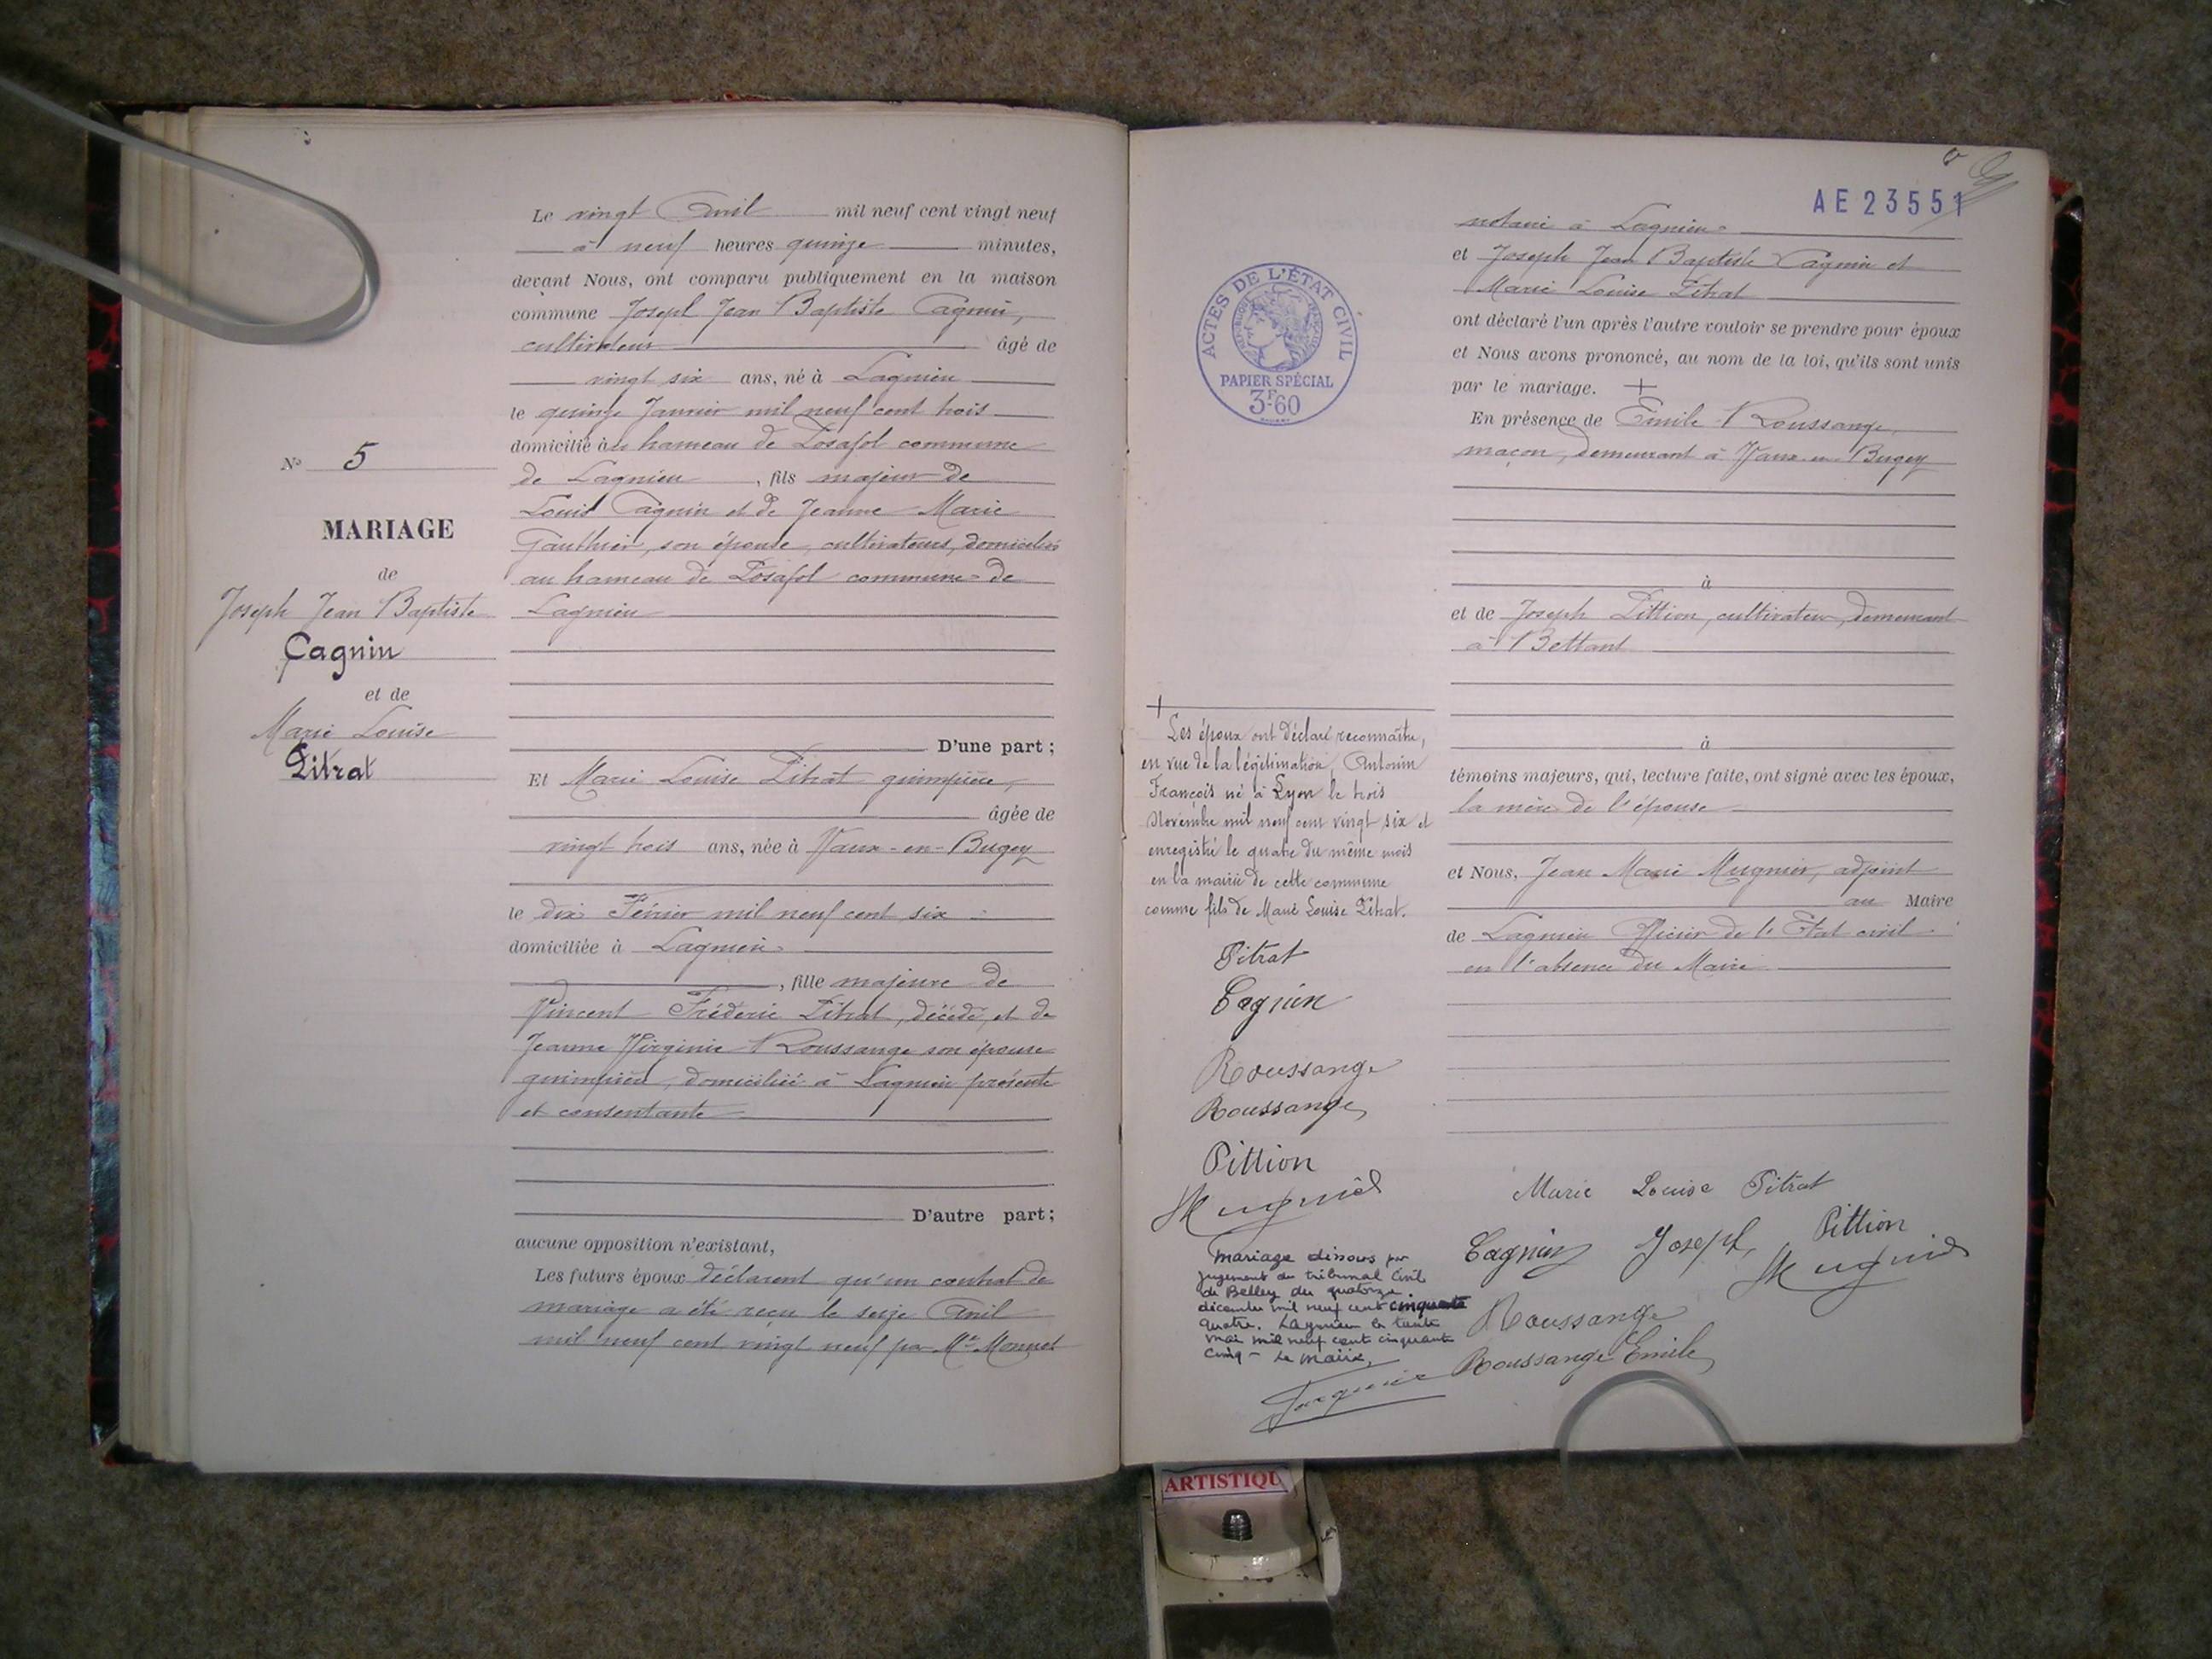 N° 5
MARIAGE
de
Joseph Jean Baptiste
Cagnin
et de
Marie Louise
Pitrat
Le vingt Avril mil neuf cent vingt neuf
à neuf heures quinze minutes,
devant Nous, ont comparu publiquement en la maison
commune Joseph Jean Baptiste Cagnin,
cultivateur âgé de
vingt six ans, né à Lagnieu
le quinze Janvier mil neuf cent trois
domicilié au hameau de Posafol commune
de Lagnieu, fils majeur de
Louis Cagnin et de Jeanne Marie
Gauthier, son épouse, cultivateurs, domiciliés
au hameau de Posafol commune de
Lagnieu
D'une part;
Et Marie Louise Pitrat guimpière,
âgée de
vingt trois ans, née à Vaux-en-Bugey
le dix Février mil neuf cent six
domiciliée à Lagnieu
, fille majeure de
Vincent Fréderic Pitrat, décédé, et de
Jeanne Virginie Roussange son épouse
guimpière, domiciliée à Lagnieu présente
et consentante
D'autre part;
aucune opposition n'existant,
Les futurs époux déclarent qu'un contrat de
mariage a été reçu le seize Avril
mil neuf cent vingt neuf par Me Monnet
AE 23551
notaire à Lagnieu
et Joseph Jean Baptiste Cagnin et
Marie Louise Pitrat
ont déclaré l'un après l'autre vouloir se prendre pour époux
et Nous avons prononcé, au nom de la loi, qu'ils sont unis
par le mariage. +
En présence de Emile Roussange,
maçon, demeurant à Vaux-en-Bugey
à
et de Joseph Pittion, cultivateur, demeurant
à Bettant
à
témoins majeurs, qui, lecture faite, ont signé avec les époux,
la mère de l'épouse
et Nous, Jean Marie Mugnier, adjoint
au Maire
de Lagnieu Officier de l'Etat civil
en l'absence du Maire
Marie Louise Pitrat
Cagnin Joseph Pittion
Mugnier
Roussange
Roussange Emile
ACTES DE L'ÉTAT CIVIL
RÉPUBLIQUE FRANÇAISE
PAPIER SPÉCIAL
3F60
+
Les époux ont déclaré reconnaître,
en vue de la légitimation, Antonin
François né à Lyon le trois
Novembre mil neuf cent vingt six et
enregistré le quatre du même mois
en la mairie de cette commune
comme fils de Marie Louise Pitrat.
Pitrat
Cagnin
Roussange
Roussange
Pittion
Mugnier
Mariage dissous par
jugement du tribunal Civil
de Belley du quatorze
décembre mil neuf cent cinquante
quatre. Lagnieu le trente
mai mil neuf cent cinquante
cinq - Le Maire,
ARTISTIQU